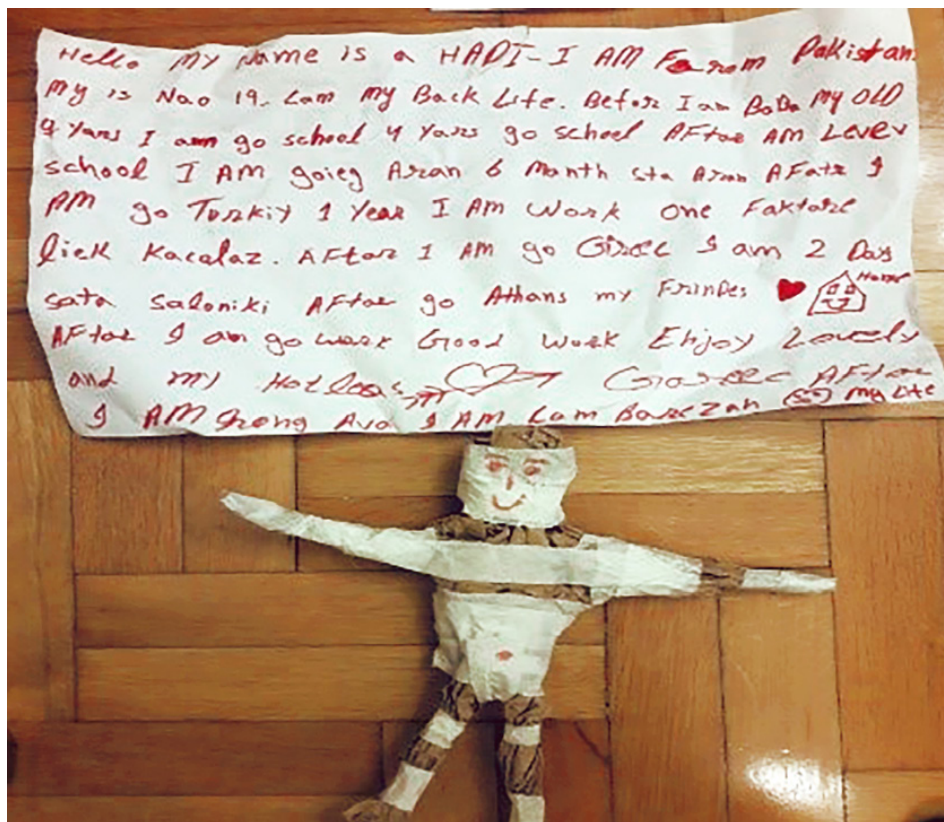 Hello My Name is a HADI-I AM Farom Pakistan
My is Nao 19. Lam my Back Life. Befor I am BaBa My OLD
9 Yars I am go school 4 Yars go school AFtar AM Lever
school I AM goieg Aran 6 Manth sta Aran AFatr I
AM go Turkiy 1 Year I AM Work one Faktare
liek Kacalaz. AFtar I AM go Girec I am 2 Days
sata Saloniki AFtar go Athans my Frindes Home
AFtar I am go work Good Work Enjoy Lovely
and my AFtar
I AM I AM Lam my Life